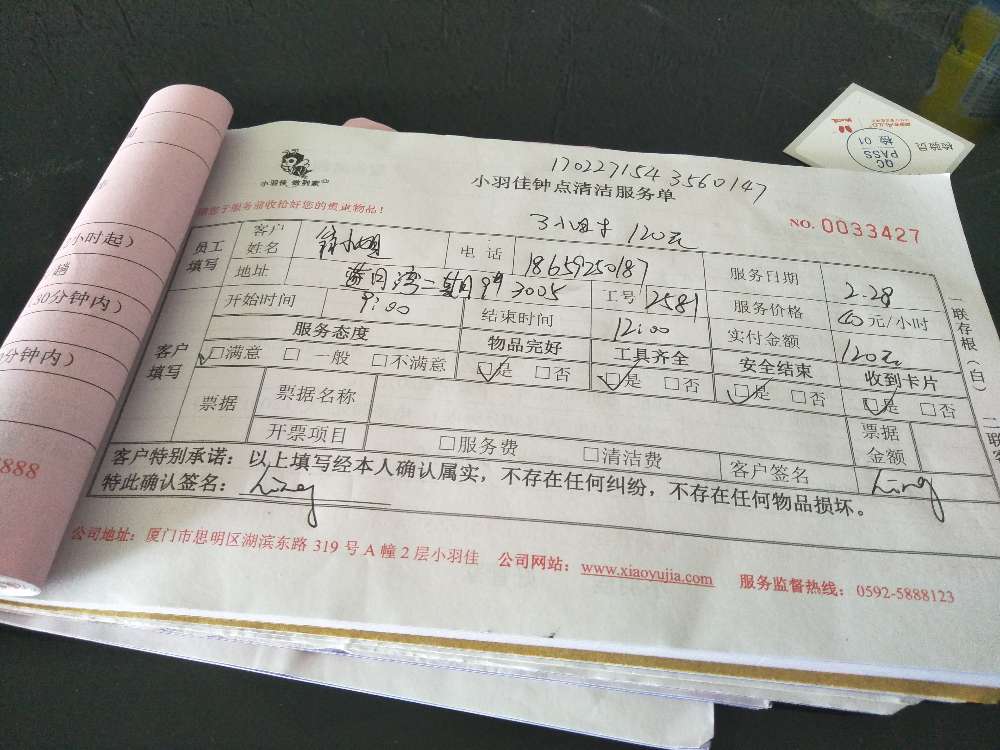 170227154 3560147
小羽佳 做到家
小羽佳钟点清洁服务单
检验员
QC PASS 检 01
3小时 120元
NO. 0033427
员工填写 客户姓名 小姐 电话 18659250187 服务日期 2.28
地址 蓝月湾二期 3005 工号 2581 服务价格 40元/小时
开始时间 9:00 结束时间 12:00 实付金额 120元
客户填写 服务态度 物品完好 工具齐全 安全结束 收到卡片
□满意 □一般 □不满意 □是 □否 □是 □否 □是 □否 □是 □否
票据 票据名称 票据金额
开票项目 □服务费 □清洁费 客户签名 Ling
客户特别承诺：以上填写经本人确认属实，不存在任何纠纷，不存在任何物品损坏。
特此确认签名： Ling
公司地址：厦门市思明区湖滨东路 319 号 A 幢 2 层小羽佳 公司网站：www.xiaoyujia.com 服务监督热线：0592-5888123
一联存根（白）
小时起）
趟
30分钟内）
分钟内）
8888